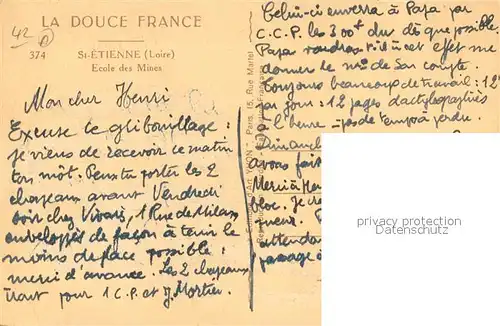 LA DOUCE FRANCE
42
374 St-ÉTIENNE (Loire)
Ecole des Mines
Mon cher Henri
Excuse ce gribouillage
je viens de recevoir ce matin
ton mot. Peux tu porter les 2
chapeaux avant Vendredi
soir chez Vivais, 1 Rue de Milan
enveloppés de façon à tenir le
moins de place possible.
merci d'avance. Les 2 chapeaux
iront pour 1 C.P. et J. Mortier.
Celui-ci enverra à Papa par
C.C.P. les 300f dès que possible.
Papa voudras t'il à cet effet me
donner le no de son compte.
Toujours beaucoup de travail : 12
par jour : 12 pages dactylographiés
l'heure - pas de temps à perdre.
Dimanche
avons fait
Merci à
bloc. Je
attendan
passage à
YVON, Paris, 15, Rue Martel
privacy protection
Datenschutz